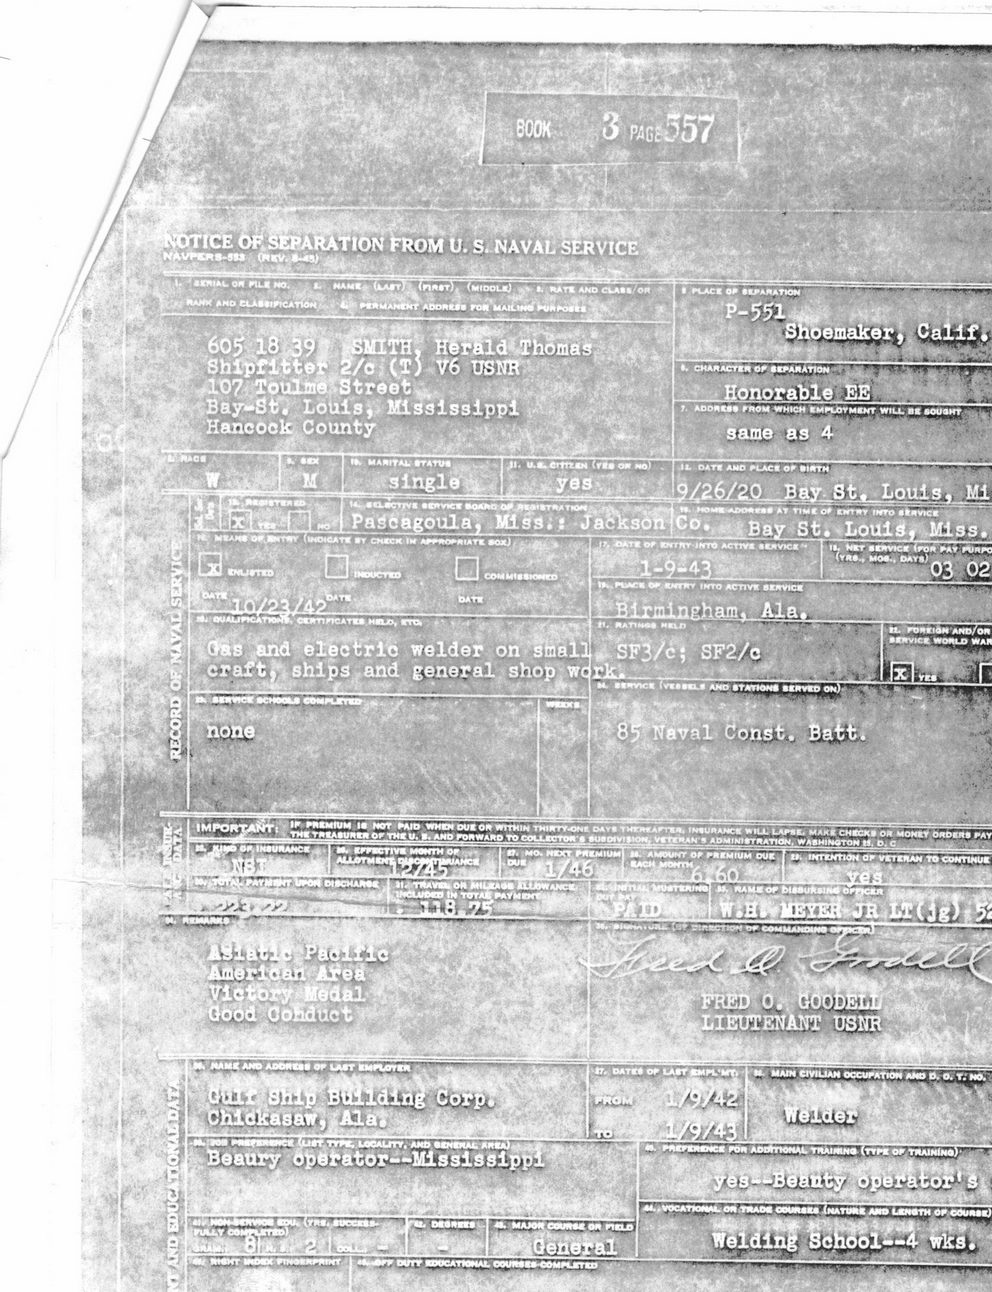 BOOK 3 PAGE 557
NOTICE OF SEPARATION FROM U. S. NAVAL SERVICE
NAVPERS-553 (REV. 8-45)
1. SERIAL OR FILE NO. 2. NAME (LAST) (FIRST) (MIDDLE) 3. RATE AND CLASS/OR
RANK AND CLASSIFICATION 4. PERMANENT ADDRESS FOR MAILING PURPOSES
605 18 39 SMITH, Herald Thomas
Shipfitter 2/c (T) V6 USNR
107 Toulme Street
Bay-St. Louis, Mississippi
Hancock County
5 PLACE OF SEPARATION
P-551
Shoemaker, Calif.
6. CHARACTER OF SEPARATION
Honorable EE
7. ADDRESS FROM WHICH EMPLOYMENT WILL BE SOUGHT
same as 4
8. RACE
W
9. SEX
M
10. MARITAL STATUS
single
11. U.S. CITIZEN (YES OR NO)
yes
12. DATE AND PLACE OF BIRTH
9/26/20 Bay St. Louis, Mi
RECORD OF NAVAL SERVICE
13. REGISTERED
X YES NO
14. SELECTIVE SERVICE BOARD OF REGISTRATION
Pascagoula, Miss.: Jackson Co.
15. HOME ADDRESS AT TIME OF ENTRY INTO SERVICE
Bay St. Louis, Miss.
16. MEANS OF ENTRY (INDICATE BY CHECK IN APPROPRIATE BOX)
X ENLISTED INDUCTED COMMISSIONED
DATE 10/23/42 DATE DATE
17. DATE OF ENTRY INTO ACTIVE SERVICE
1-9-43
18. NET SERVICE (FOR PAY PURPO
(YRS., MOS., DAYS)
03 02
19. PLACE OF ENTRY INTO ACTIVE SERVICE
Birmingham, Ala.
20. QUALIFICATIONS, CERTIFICATES HELD, ETC.
Gas and electric welder on small
craft, ships and general shop work.
21. RATINGS HELD
SF3/c; SF2/c
22. FOREIGN AND/OR
SERVICE WORLD WAR
X YES
23. SERVICE SCHOOLS COMPLETED WEEKS
none
24. SERVICE (VESSELS AND STATIONS SERVED ON)
85 Naval Const. Batt.
IMPORTANT: IF PREMIUM IS NOT PAID WHEN DUE OR WITHIN THIRTY-ONE DAYS THEREAFTER, INSURANCE WILL LAPSE. MAKE CHECKS OR MONEY ORDERS PAY
THE TREASURER OF THE U. S. AND FORWARD TO COLLECTOR'S SUBDIVISION, VETERAN'S ADMINISTRATION, WASHINGTON 25, D. C
25. KIND OF INSURANCE
NSI
26. EFFECTIVE MONTH OF
ALLOTMENT DISCONTINUANCE
12/45
27. MO. NEXT PREMIUM
DUE
1/46
28. AMOUNT OF PREMIUM DUE
EACH MONTH
6.60
29. INTENTION OF VETERAN TO CONTINUE
yes
30. TOTAL PAYMENT UPON DISCHARGE
31. TRAVEL OR MILEAGE ALLOWANCE
INCLUDED IN TOTAL PAYMENT
118.75
32. INITIAL MUSTERING
OUT PAY
PAID
33. NAME OF DISBURSING OFFICER
W.H. MEYER JR LT(jg)
34. REMARKS
Asiatic Pacific
American Area
Victory Medal
Good Conduct
35. SIGNATURE (BY DIRECTION OF COMMANDING OFFICER)
Fred O Goodell
FRED O. GOODELL
LIEUTENANT USNR
36. NAME AND ADDRESS OF LAST EMPLOYER
Gulf Ship Building Corp.
Chickasaw, Ala.
37. DATES OF LAST EMPL'MT.
FROM 1/9/42
TO 1/9/43
38. MAIN CIVILIAN OCCUPATION AND D. O. T. NO.
Welder
39. JOB PREFERENCE (LIST TYPE, LOCALITY, AND GENERAL AREA)
Beaury operator--Mississippi
40. PREFERENCE FOR ADDITIONAL TRAINING (TYPE OF TRAINING)
yes--Beauty operator's
41. NON-SERVICE EDU. (YRS. SUCCESS-
FULLY COMPLETED)
GRAM. 8 H. S. 2 COLL. -
42. DEGREES
-
43. MAJOR COURSE OR FIELD
General
44. VOCATIONAL OR TRADE COURSES (NATURE AND LENGTH OF COURSE)
Welding School--4 wks.
45. RIGHT INDEX FINGERPRINT 46. OFF DUTY EDUCATIONAL COURSES COMPLETED